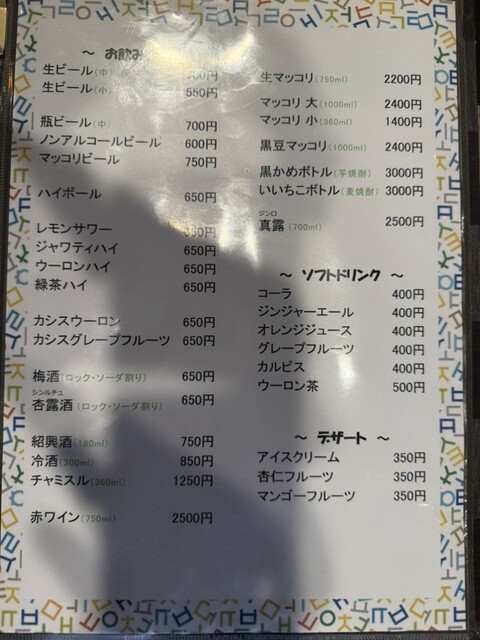 ～ お飲み
生ビール(中) 700円
生ビール(小) 550円
瓶ビール(中) 700円
ノンアルコールビール 600円
マッコリビール 750円
ハイボール 650円
レモンサワー
ジャワティハイ 650円
ウーロンハイ 650円
緑茶ハイ 650円
カシスウーロン 650円
カシスグレープフルーツ 650円
梅酒(ロック・ソーダ割り) 650円
シンルチュ
杏露酒(ロック・ソーダ割り) 650円
紹興酒(180ml) 750円
冷酒(300ml) 850円
チャミスル(360ml) 1250円
赤ワイン(750ml) 2500円
生マッコリ(750ml) 2200円
マッコリ 大(1000ml) 2400円
マッコリ 小(360ml) 1400円
黒豆マッコリ(1000ml) 2400円
黒かめボトル(芋焼酎) 3000円
いいちこボトル(麦焼酎) 3000円
ジンロ
真露(700ml) 2500円
～ ソフトドリンク ～
コーラ 400円
ジンジャーエール 400円
オレンジジュース 400円
グレープフルーツ 400円
カルピス 400円
ウーロン茶 500円
～ デザート ～
アイスクリーム 350円
杏仁フルーツ 350円
マンゴーフルーツ 350円